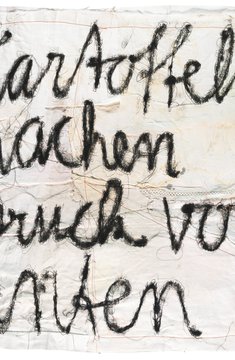 artoffel
achen
ruck vo
nten